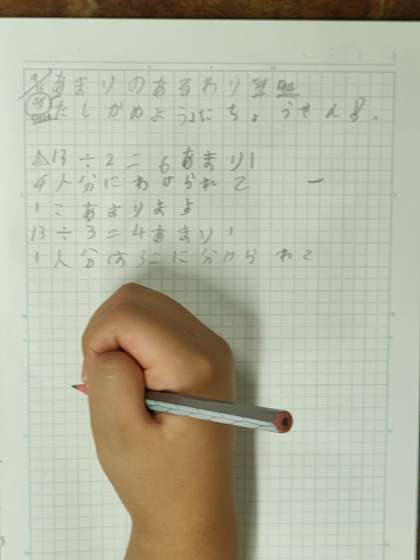 あまりのあるわり算
たしかめようにちょうせん
13÷2=6あまり1
4人分にわけられて
1こあまりまよ
13÷3=4あまり1
1人分は3こに分けられて